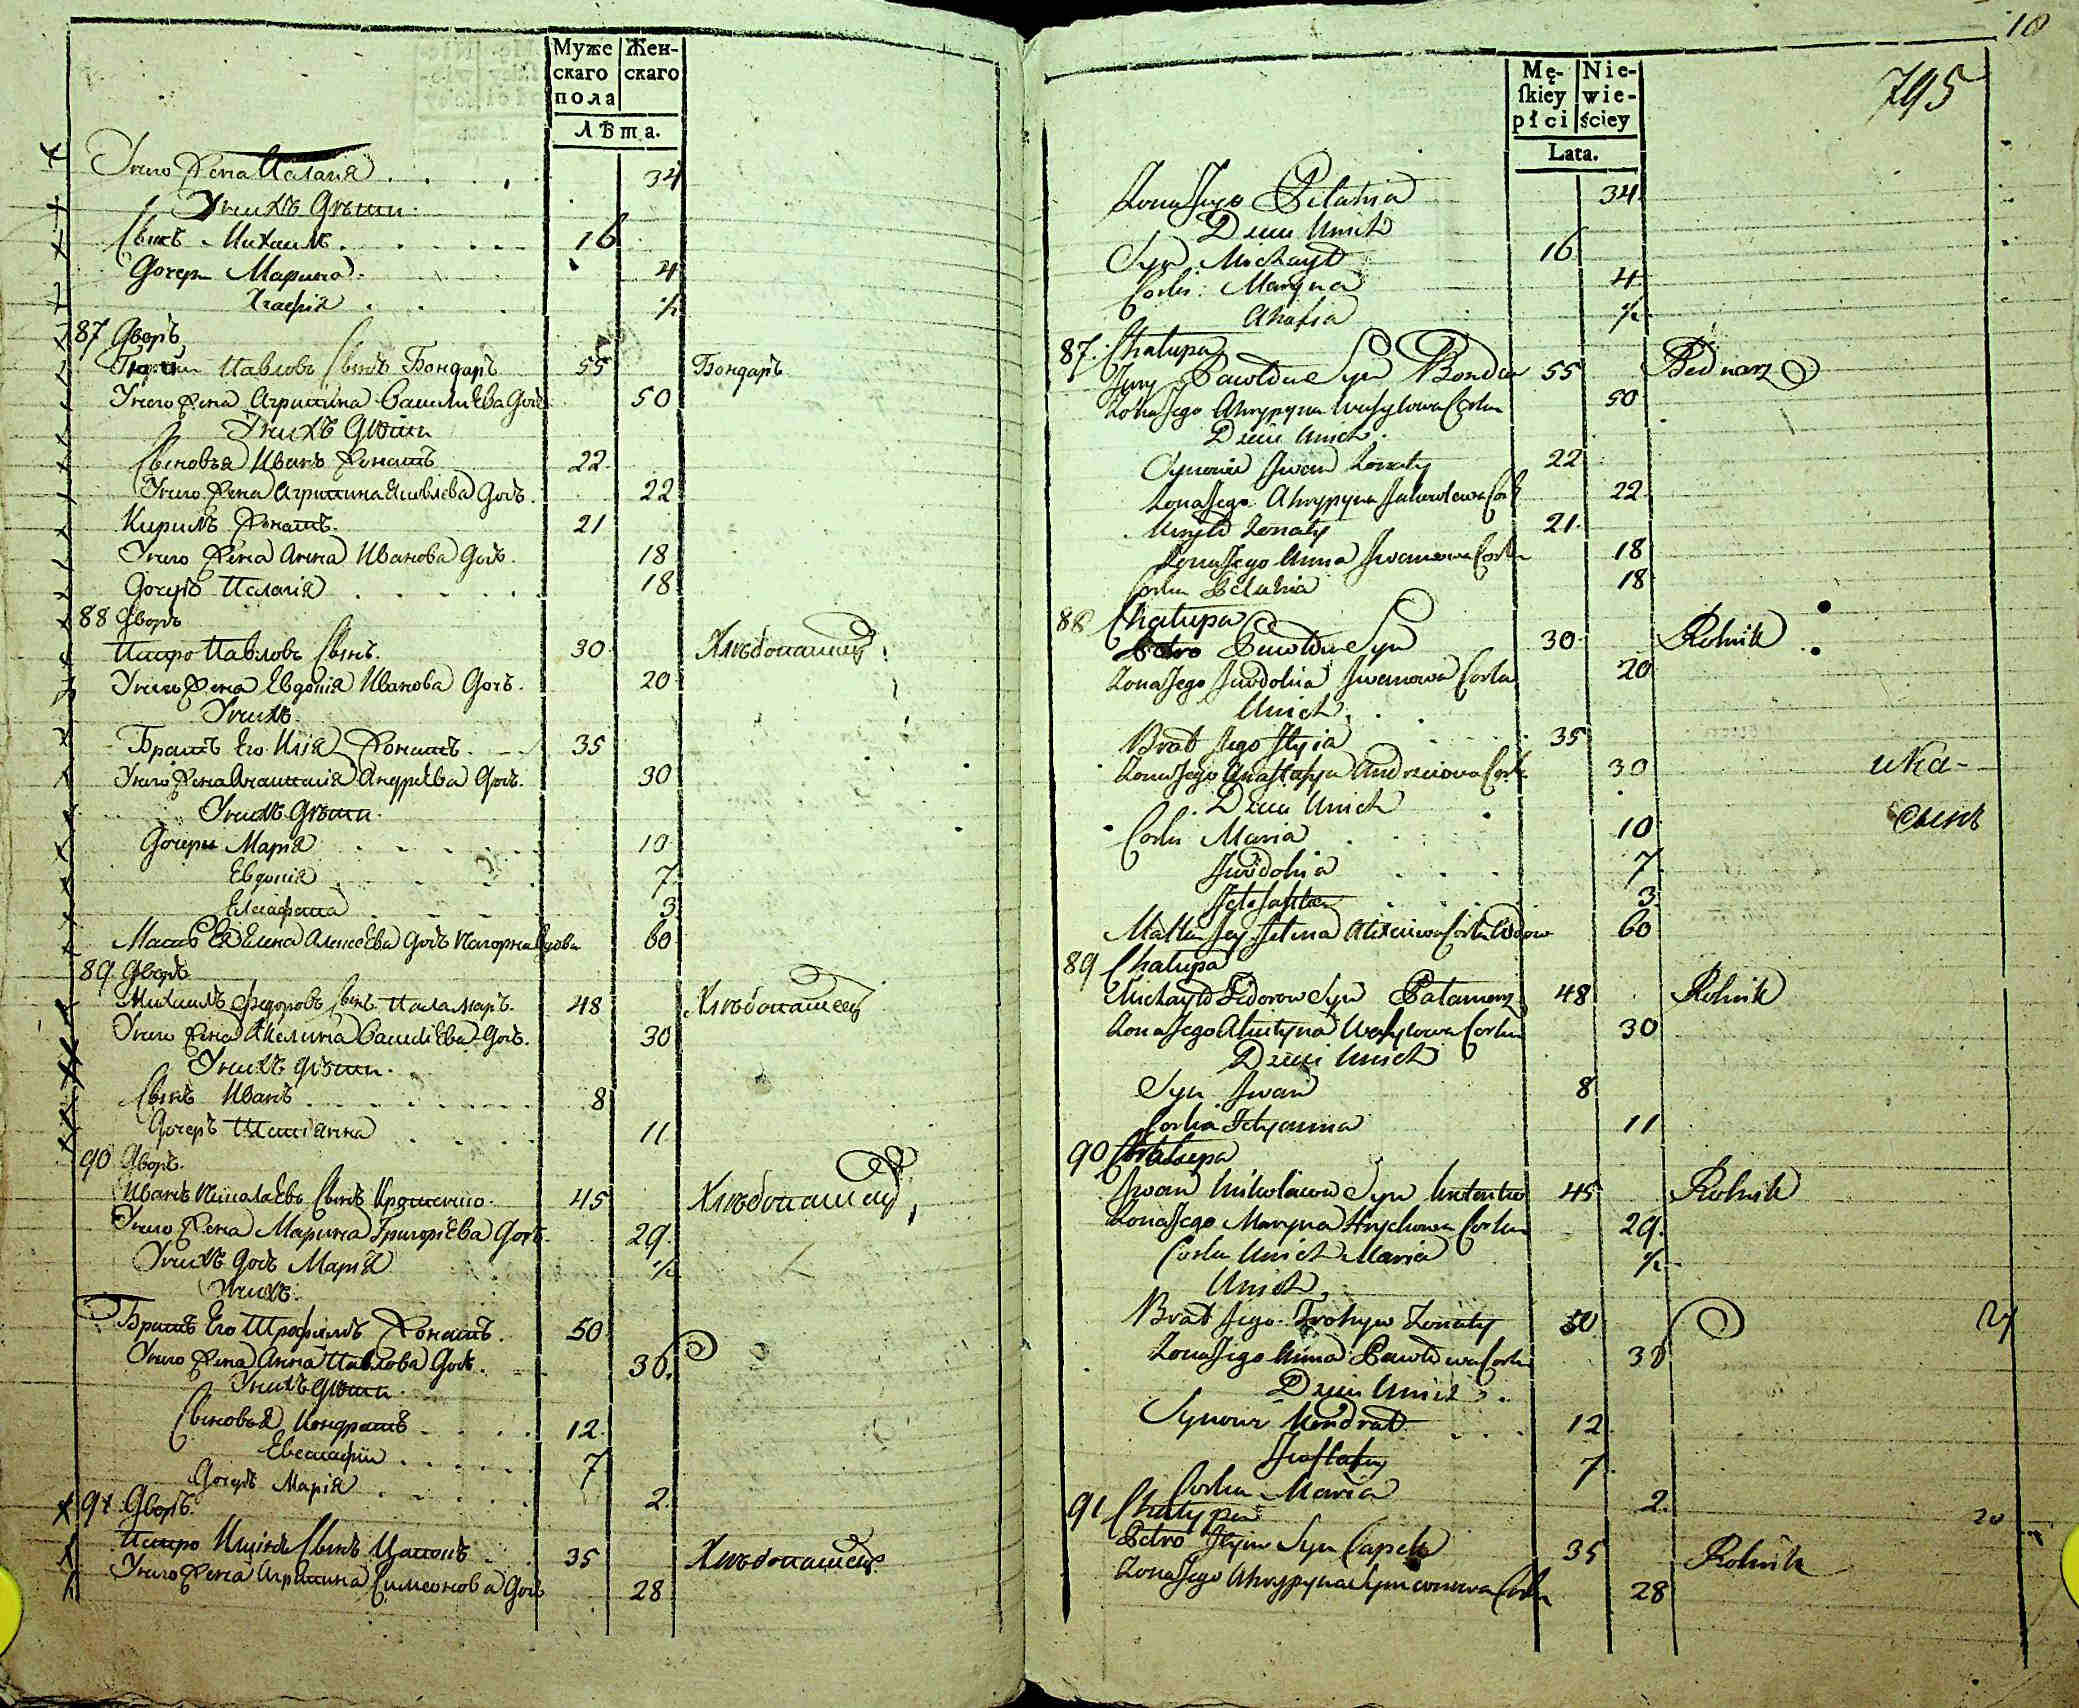 Муже Жен-
скаго скаго
пола
Лѣта.
Унего Жена Палагія 34
Унихъ Дѣти
Сынъ Михаилъ 16
Дочери Марина 4
Агафія ½
87 Дворъ
Павловъ Сынъ Бондарь 55 Бондарь
Унего Жена Агрипина Василиева Дочь 50
Унихъ Дѣти
Сыновья Иванъ Женатъ 22
Унего Жена Агрипина Яковлева Дочь 22
Кирилъ Женатъ 21
Унего Жена Анна Иванова Дочь 18
Дочерь Палагія 18
88 Дворъ
Петро Павловъ Сынъ 30 Хлѣбопашецъ
Унего Жена Евдокія Иванова Дочь 20
Унихъ
Братъ Его Илія Женатъ 35
Унего Жена Анастасія Андрѣева Дочь 30
Унихъ Дѣти
Дочери Марія 10
Евдокія 7
3
Мать Ея Елена Алексѣева Дочь Вдова 60
89 Дворъ
Михаилъ Федоровъ Сынъ Паламарь 48 Хлѣбопашецъ
Унего Жена Акелина Василиева Дочь 30
Унихъ Дѣти
Сынъ Иванъ 8
Дочерь Тетіанна 11
90 Дворъ
Иванъ Николаевъ Сынъ 45 Хлѣбопашецъ
Унего Жена Марина Григоріева Дочь 29
Унихъ Дочь Марія ½
Унихъ
Братъ Его Трофимъ Женатъ 50
Унего Жена Анна Павлова Дочь 36
Унихъ Дѣти
Сыновья Кондратъ 12
Евстафіи 7
Дочерь Марія 2
91 Дворъ
Петро Илiинъ Сынъ Цапокъ 35 Хлѣбопашецъ
Унего Жена Агрипина Симеонова Дочь 28
10
795
Mę- Nie-
ſkiey wie-
płci ściey
Lata.
Zona Jego Pelahia 34
Dzieci Unich
Syn Michayło 16
Corki Maryna 4
Ahafia ½
87 Chałupa
Jury Pawłow Syn Bondar 55 Bednarz
Zona Jego Ahrypyna Wasylowa Corka 50
Dzieci Unich
Synowie Jwan Zonaty 22
Zona Jego Ahrypyna Jakowlewa Cork 22
Kiryło Zonaty 21
Zona Jego Anna Jwanowa Corka 18
Corka Pelahia 18
88 Chałupa
Petro Pawłow Syn 30 Rolnik
Zona Jego Jwdokia Jwanowa Corka 20
Unich
Brat Jego Jlyia 35
Zona Jego Anastasya Andrzeiowa Cork 30
ика-
Dzieci Unich
сынъ
Corki Maria 10
Jwdokia 7
3
Matka Jey Jelena Alexieiowa Corka Wdow 60
89 Chałupa
Michayło Fedorow Syn Pałamarz 48 Rolnik
Zona Jego Akilyna Wasylowa Corka 30
Dzieci Unich
Syn Jwan 8
Corka Tetyanna 11
90 Chałupa
Jwan Nikołaiow Syn 45 Rolnik
Zona Jego Maryna Hryhorowa Corka 29
Corka Unich Maria ½
Unich
Brat Jego Trohym Zonaty 50
Zona Jego Anna Pawłowa Corka 36
Dzieci Unich
Synowie Kondrat 12
Jwstafiy 7
Corka Maria 2
91 Chałupa
Petro Jlyin Syn Capok 35 Rolnik
Zona Jego Ahrypyna Symeonowa Corka 28